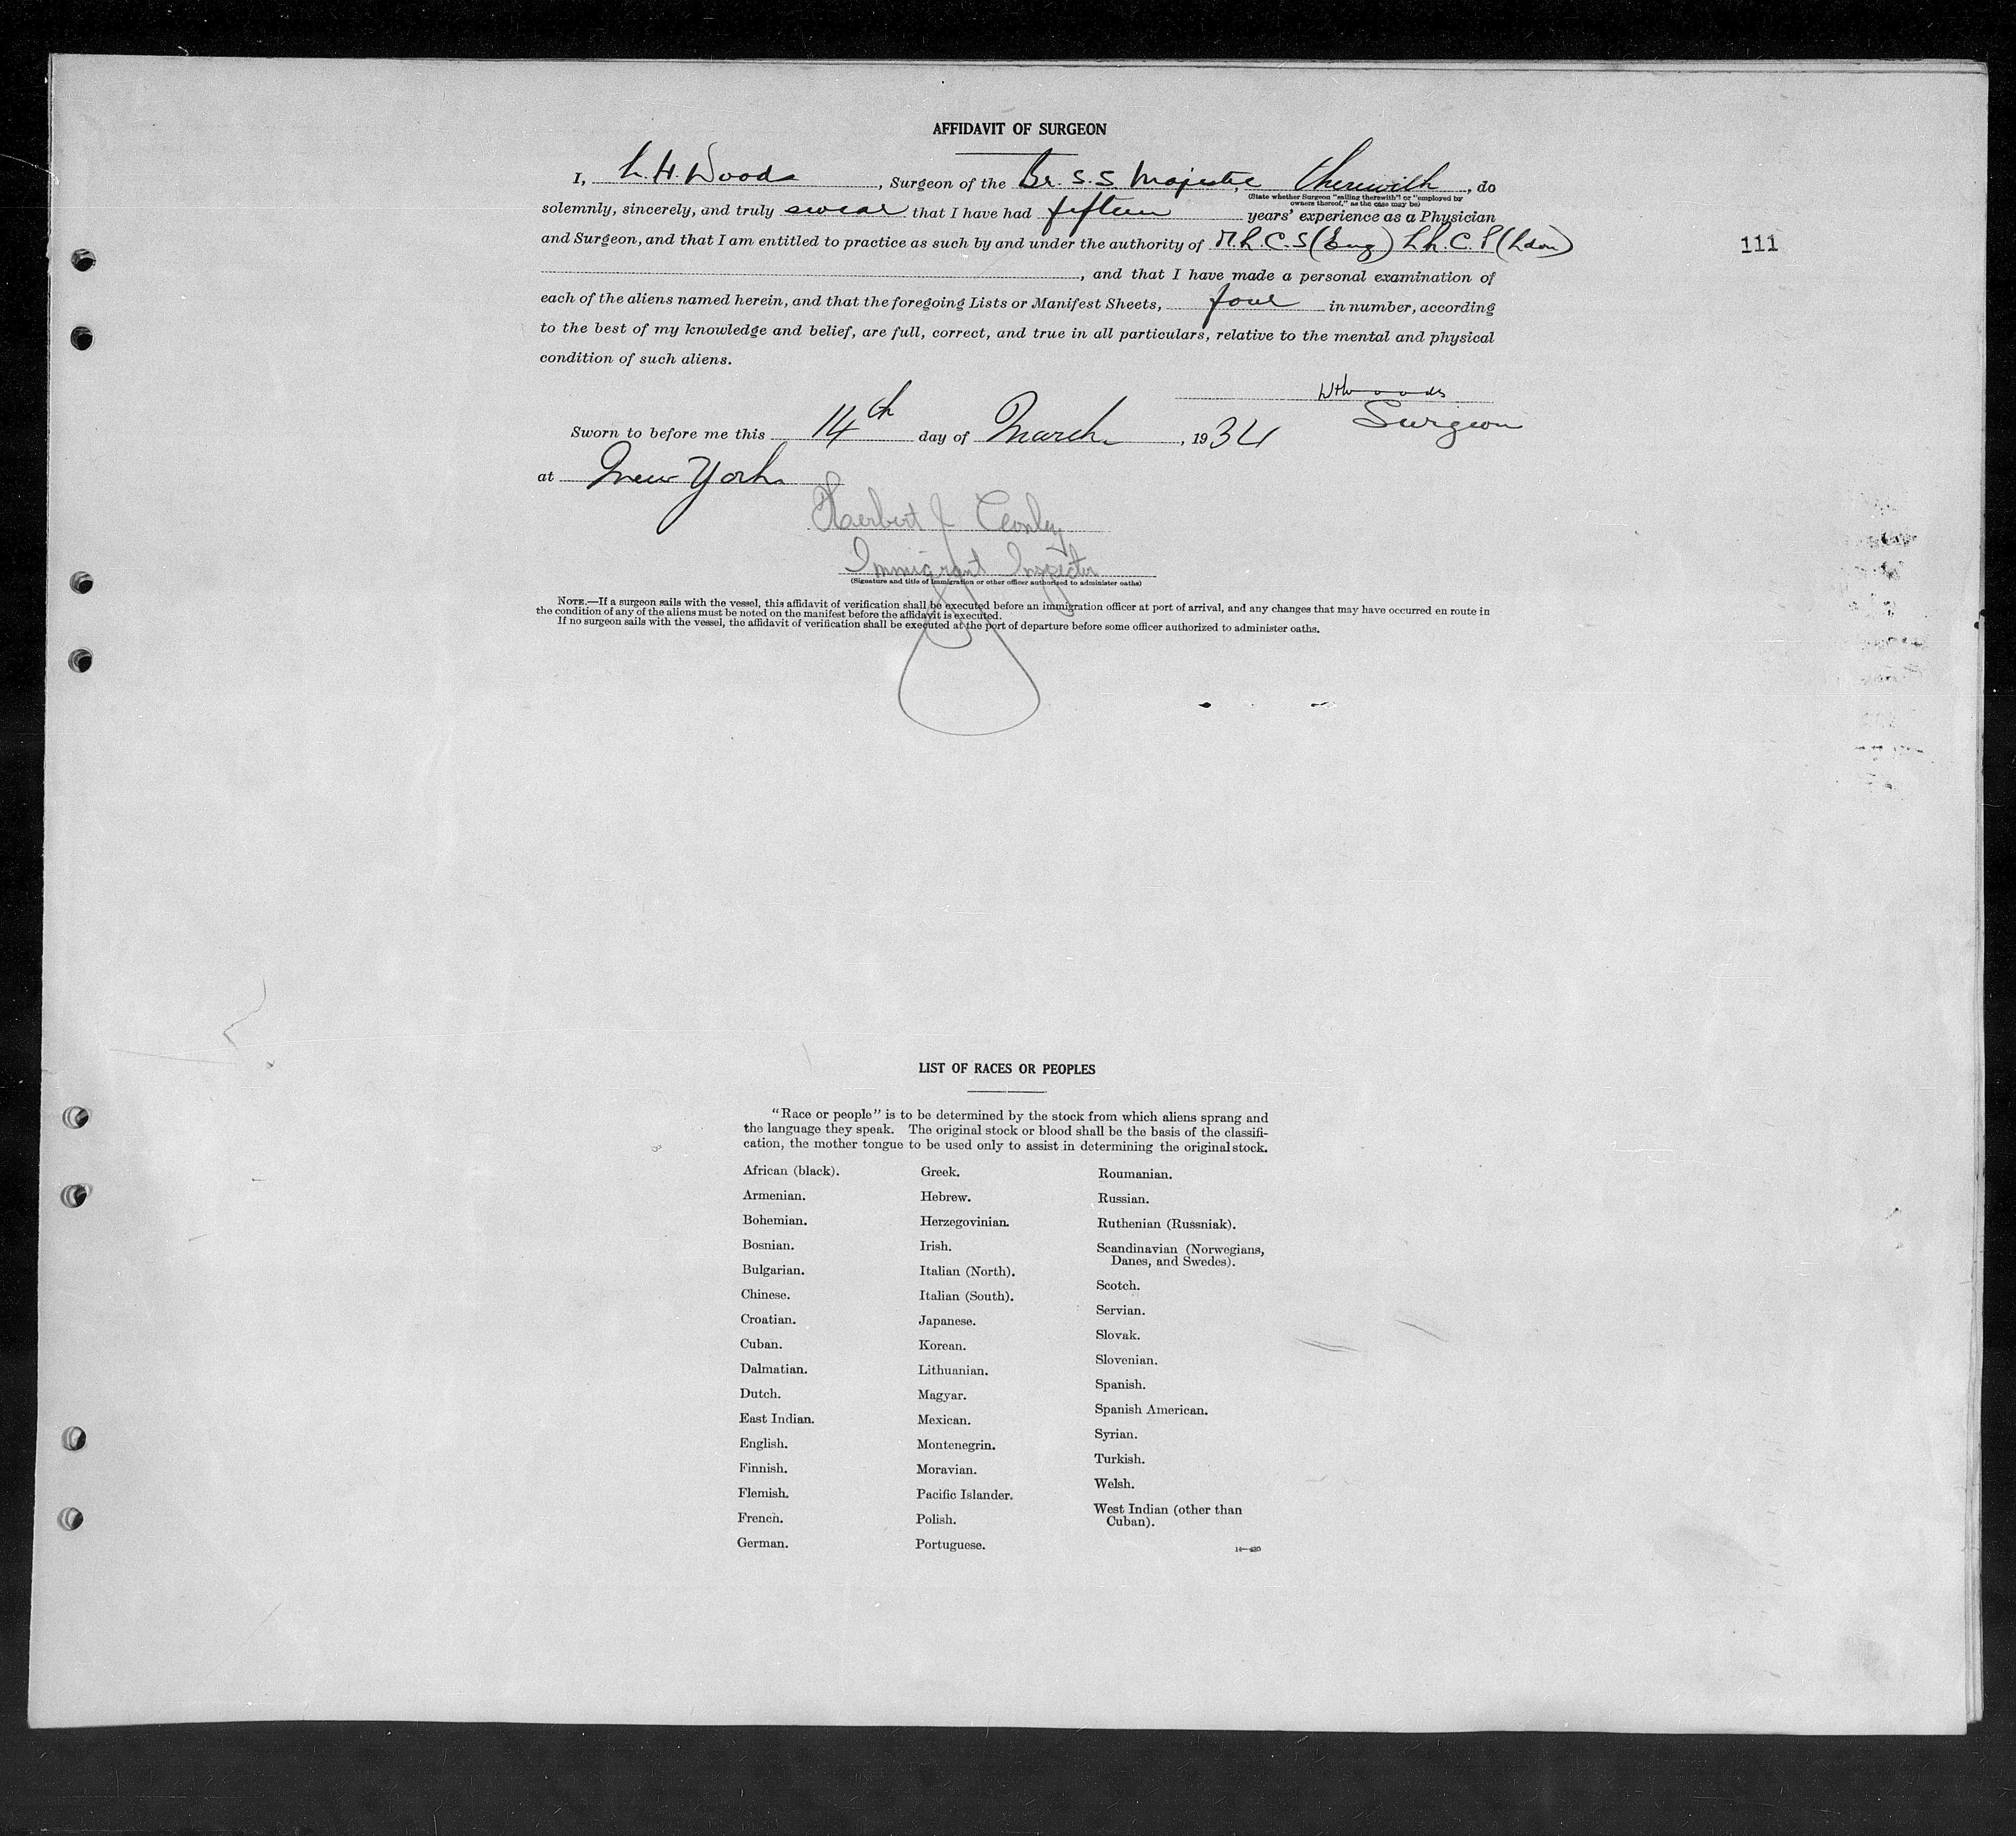 AFFIDAVIT OF SURGEON
I, L. H. Woods, Surgeon of the Br. S.S. Majestic, therewith, do
(State whether Surgeon "sailing therewith" or "employed by
owners thereof," as the case may be)
solemnly, sincerely, and truly swear that I have had fifteen years' experience as a Physician
and Surgeon, and that I am entitled to practice as such by and under the authority of M.R.C.S (Eng) L.R.C.P (Ldon)
111
, and that I have made a personal examination of
each of the aliens named herein, and that the foregoing Lists or Manifest Sheets, four in number, according
to the best of my knowledge and belief, are full, correct, and true in all particulars, relative to the mental and physical
condition of such aliens.
Surgeon
Sworn to before me this 14th day of March, 1934
at New York
Herbert J
Immigrant Inspector
(Signature and title of immigration or other officer authorized to administer oaths)
NOTE.—If a surgeon sails with the vessel, this affidavit of verification shall be executed before an immigration officer at port of arrival, and any changes that may have occurred en route in
the condition of any of the aliens must be noted on the manifest before the affidavit is executed.
If no surgeon sails with the vessel, the affidavit of verification shall be executed at the port of departure before some officer authorized to administer oaths.
LIST OF RACES OR PEOPLES
"Race or people" is to be determined by the stock from which aliens sprang and
the language they speak. The original stock or blood shall be the basis of the classifi-
cation, the mother tongue to be used only to assist in determining the original stock.
African (black).
Armenian.
Bohemian.
Bosnian.
Bulgarian.
Chinese.
Croatian.
Cuban.
Dalmatian.
Dutch.
East Indian.
English.
Finnish.
Flemish.
French.
German.
Greek.
Hebrew.
Herzegovinian.
Irish.
Italian (North).
Italian (South).
Japanese.
Korean.
Lithuanian.
Magyar.
Mexican.
Montenegrin.
Moravian.
Pacific Islander.
Polish.
Portuguese.
Roumanian.
Russian.
Ruthenian (Russniak).
Scandinavian (Norwegians,
Danes, and Swedes).
Scotch.
Servian.
Slovak.
Slovenian.
Spanish.
Spanish American.
Syrian.
Turkish.
Welsh.
West Indian (other than
Cuban).